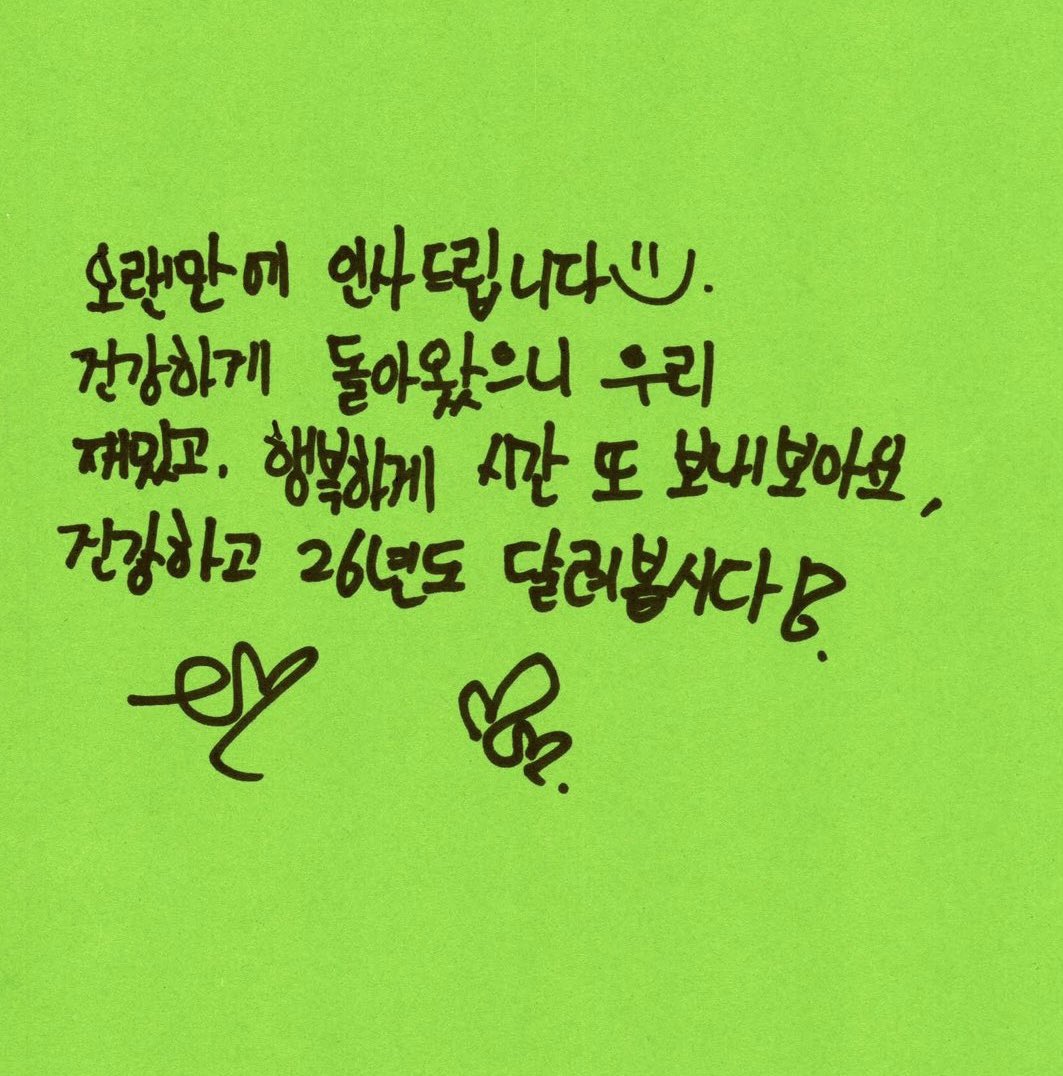 오랜만에 인사드립니다.
건강하게 돌아왔으니 우리
재밌고, 행복하게 시간 또 보내보아요,
건강하고 26년도 달려봅시다!